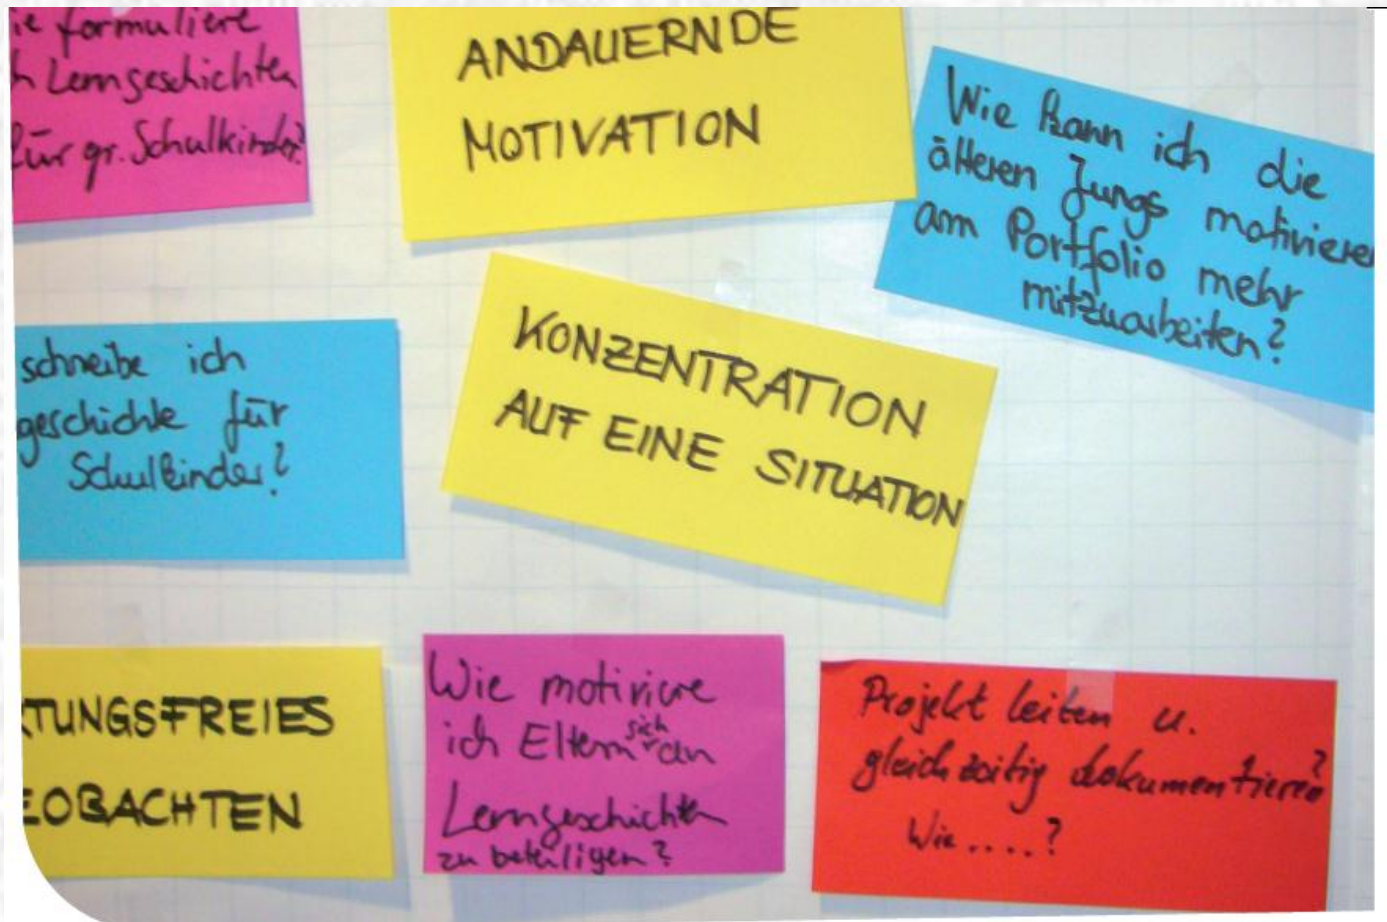 ie formuliere
h Lerngeschichten
für gr. Schulkinder?
ANDAUERNDE
MOTIVATION
Wie kann ich die
älteren Jungs motivieren
am Portfolio mehr
mitzuarbeiten?
schreibe ich
geschichte für
Schulkinder?
KONZENTRATION
AUF EINE SITUATION
TUNGSFREIES
EOBACHTEN
Wie motiviere
ich Eltern sich an
Lerngeschichten
zu beteiligen?
Projekt leiten u.
gleichzeitig dokumentieren?
Wie....?